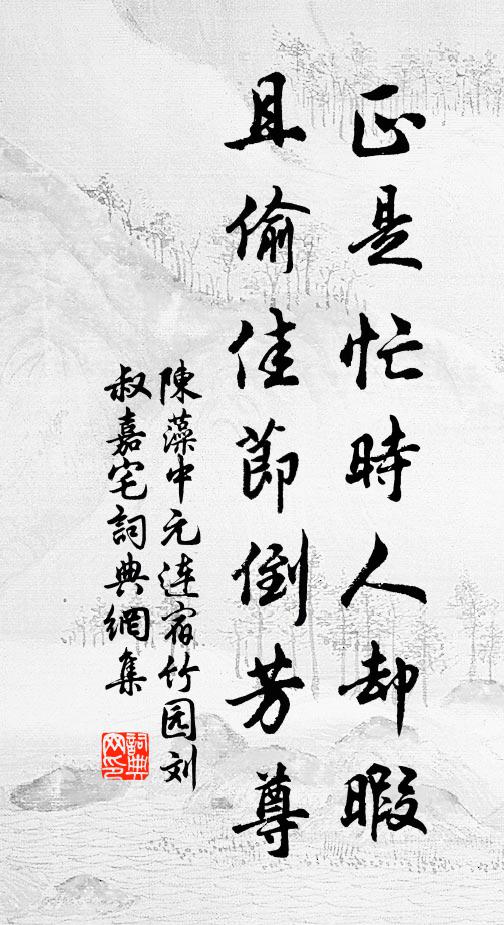 正是忙時人却暇
且偷佳節倒芳尊
陳藻中元連宿竹园刘
叔嘉宅詞典網集
詞典
网印